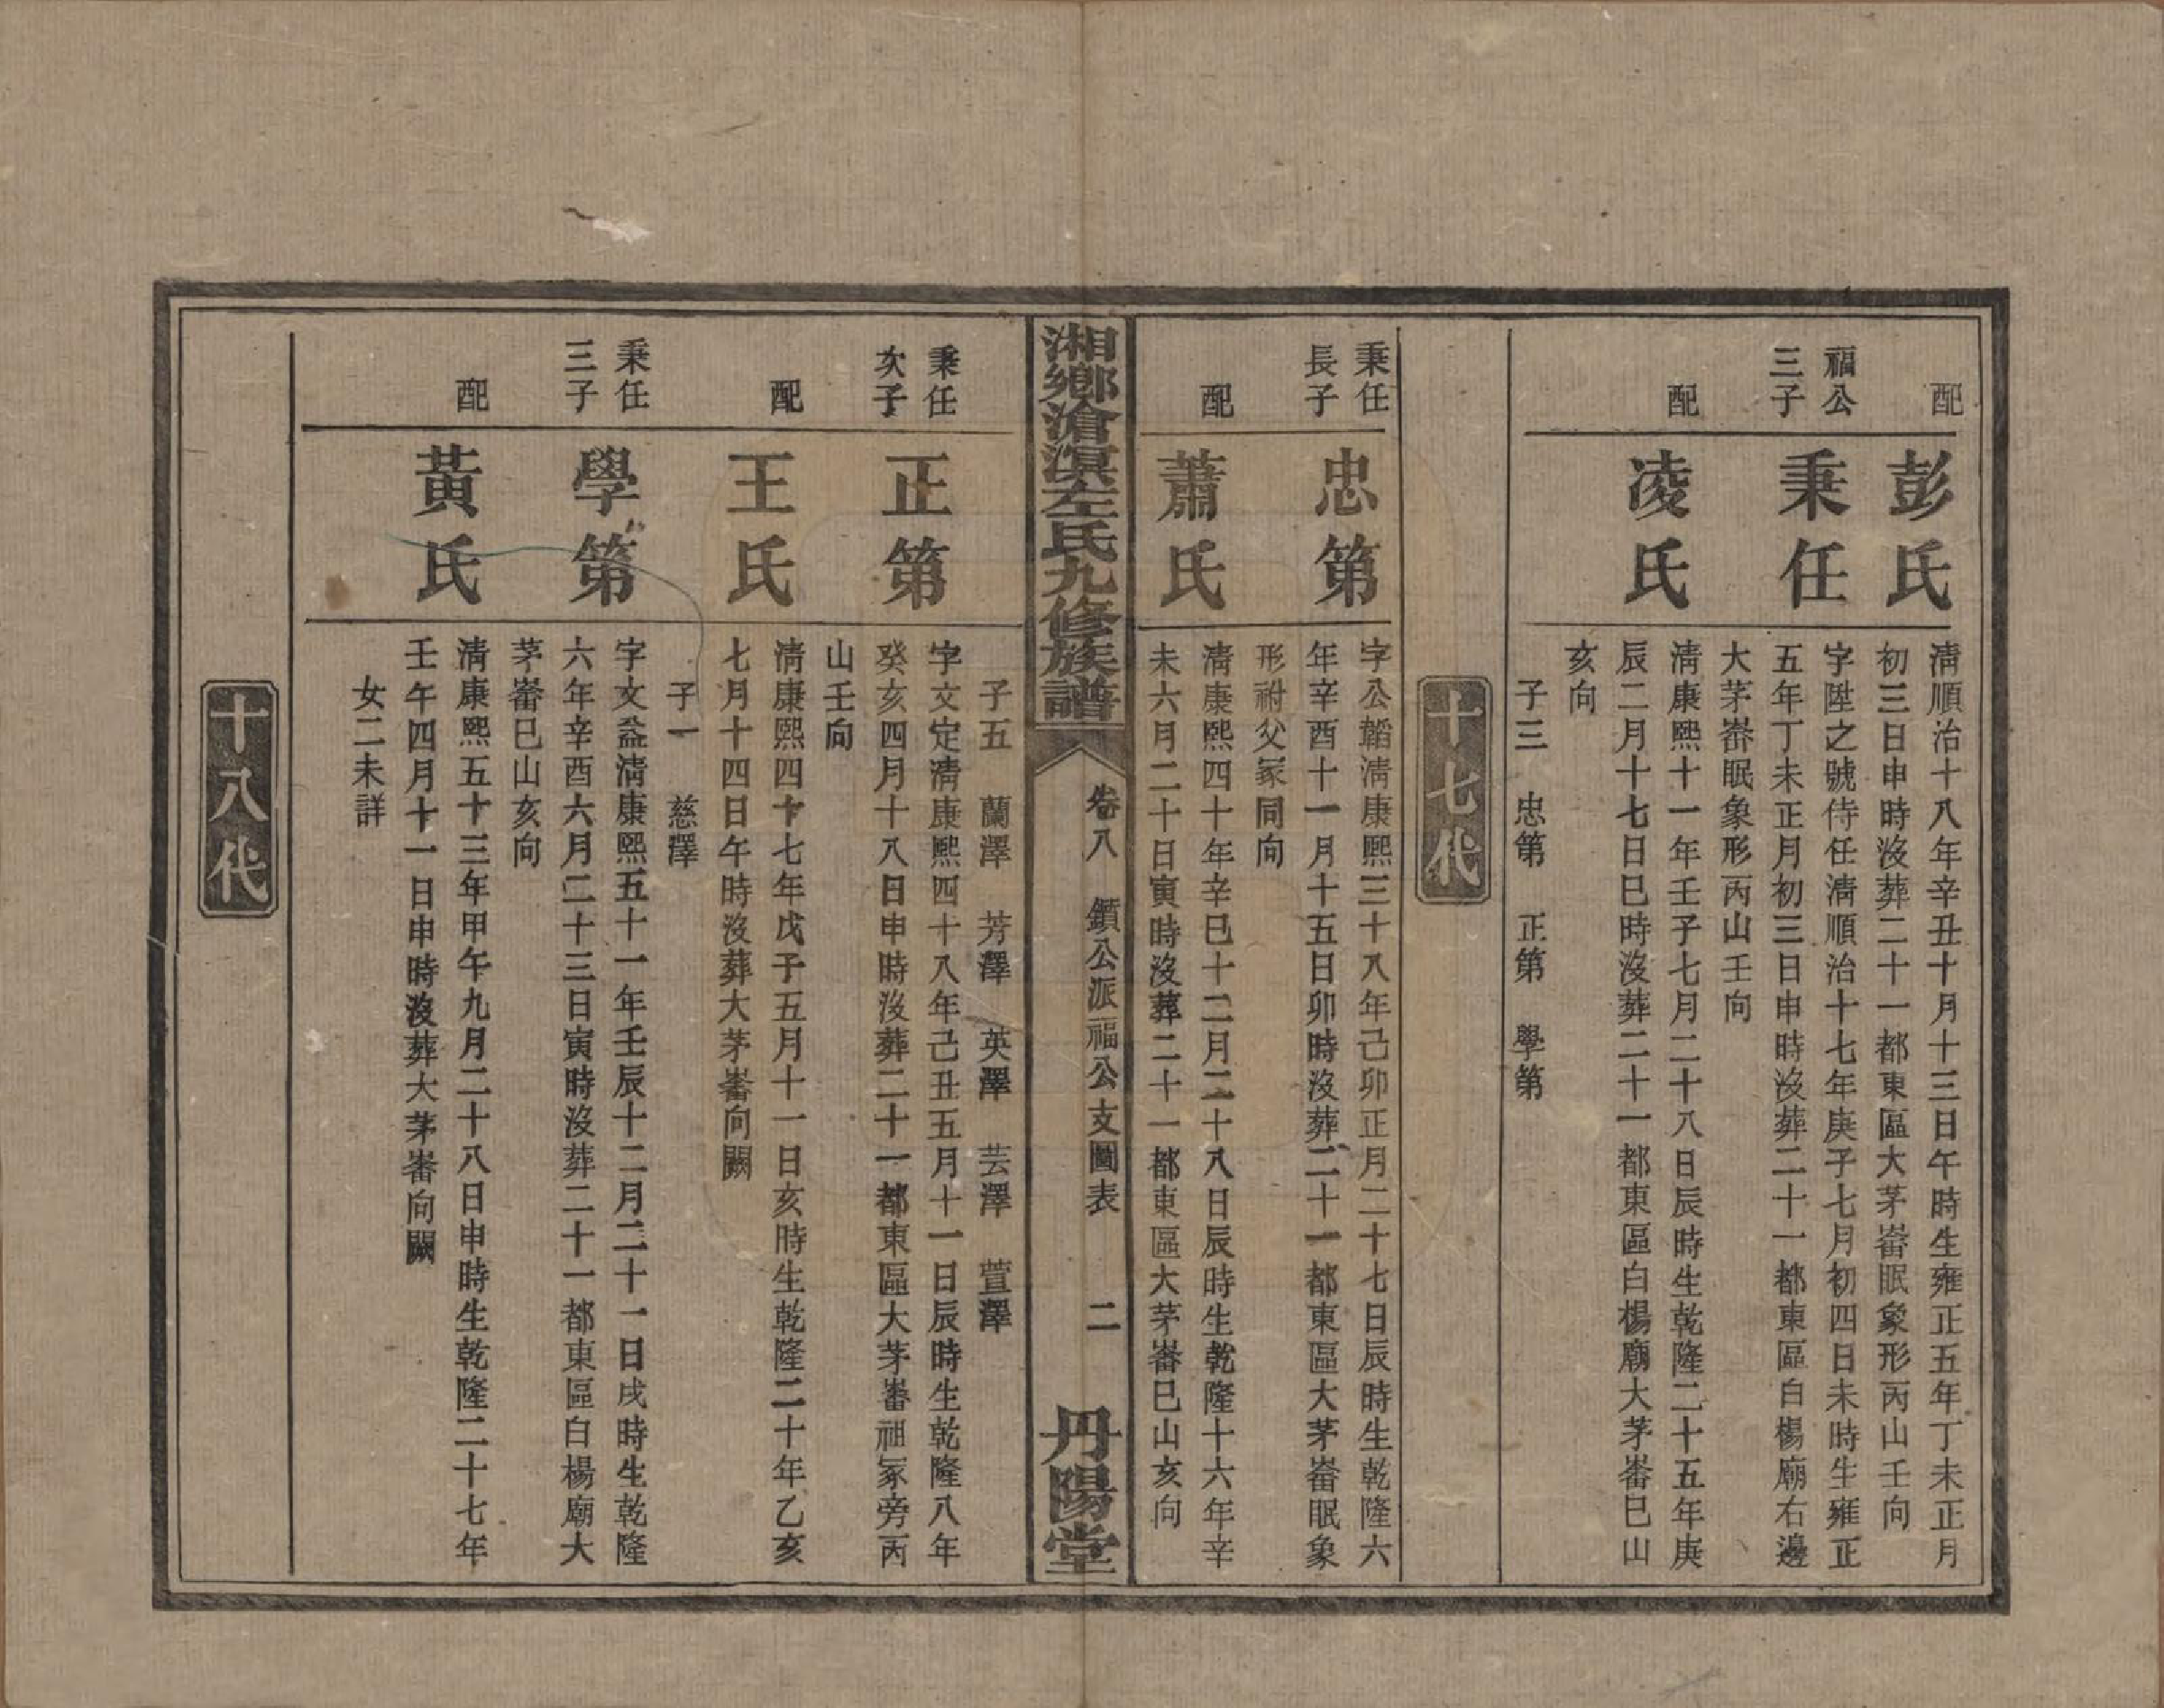 配
彭氏
清順治十八年辛丑十月十三日午時生雍正五年丁未正月
初三日申時沒葬二十一都東區大茅崙眠象形丙山壬向
福公
三子
秉任
字陞之號侍任清順治十七年庚子七月初四日未時生雍正
五年丁未正月初三日申時沒葬二十一都東區白楊廟右邊
大茅崙眠象形丙山壬向
配
凌氏
清康熙十一年壬子七月二十八日辰時生乾隆二十五年庚
辰二月十七日巳時沒葬二十一都東區白楊廟大茅崙巳山
亥向
子三 忠第 正第 學第
十七代
秉任
長子
忠第
字公韜清康熙三十八年己卯正月二十七日辰時生乾隆六
年辛酉十一月十五日卯時沒葬二十一都東區大茅崙眠象
形祔父冢同向
配
蕭氏
清康熙四十年辛巳十二月二十八日辰時生乾隆十六年辛
未六月二十日寅時沒葬二十一都東區大茅崙巳山亥向
湘鄉滄溟左氏九修族譜
卷八 鎖公派福公支圖表 二
丹陽堂
子五 蘭澤 芳澤 英澤 芸澤 萱澤
秉任
次子
正第
字文定清康熙四十八年己丑五月十一日辰時生乾隆八年
癸亥四月十八日申時沒葬二十一都東區大茅崙祖冢旁丙
山壬向
配
王氏
清康熙四十七年戊子五月十一日亥時生乾隆二十年乙亥
七月十四日午時沒葬大茅崙向闕
子一 慈澤
秉任
三子
學第
字文益清康熙五十一年壬辰十二月二十一日戌時生乾隆
六年辛酉六月二十三日寅時沒葬二十一都東區白楊廟大
茅崙巳山亥向
配
黃氏
清康熙五十三年甲午九月二十八日申時生乾隆二十七年
壬午四月十一日申時沒葬大茅崙向闕
女二未詳
十八代